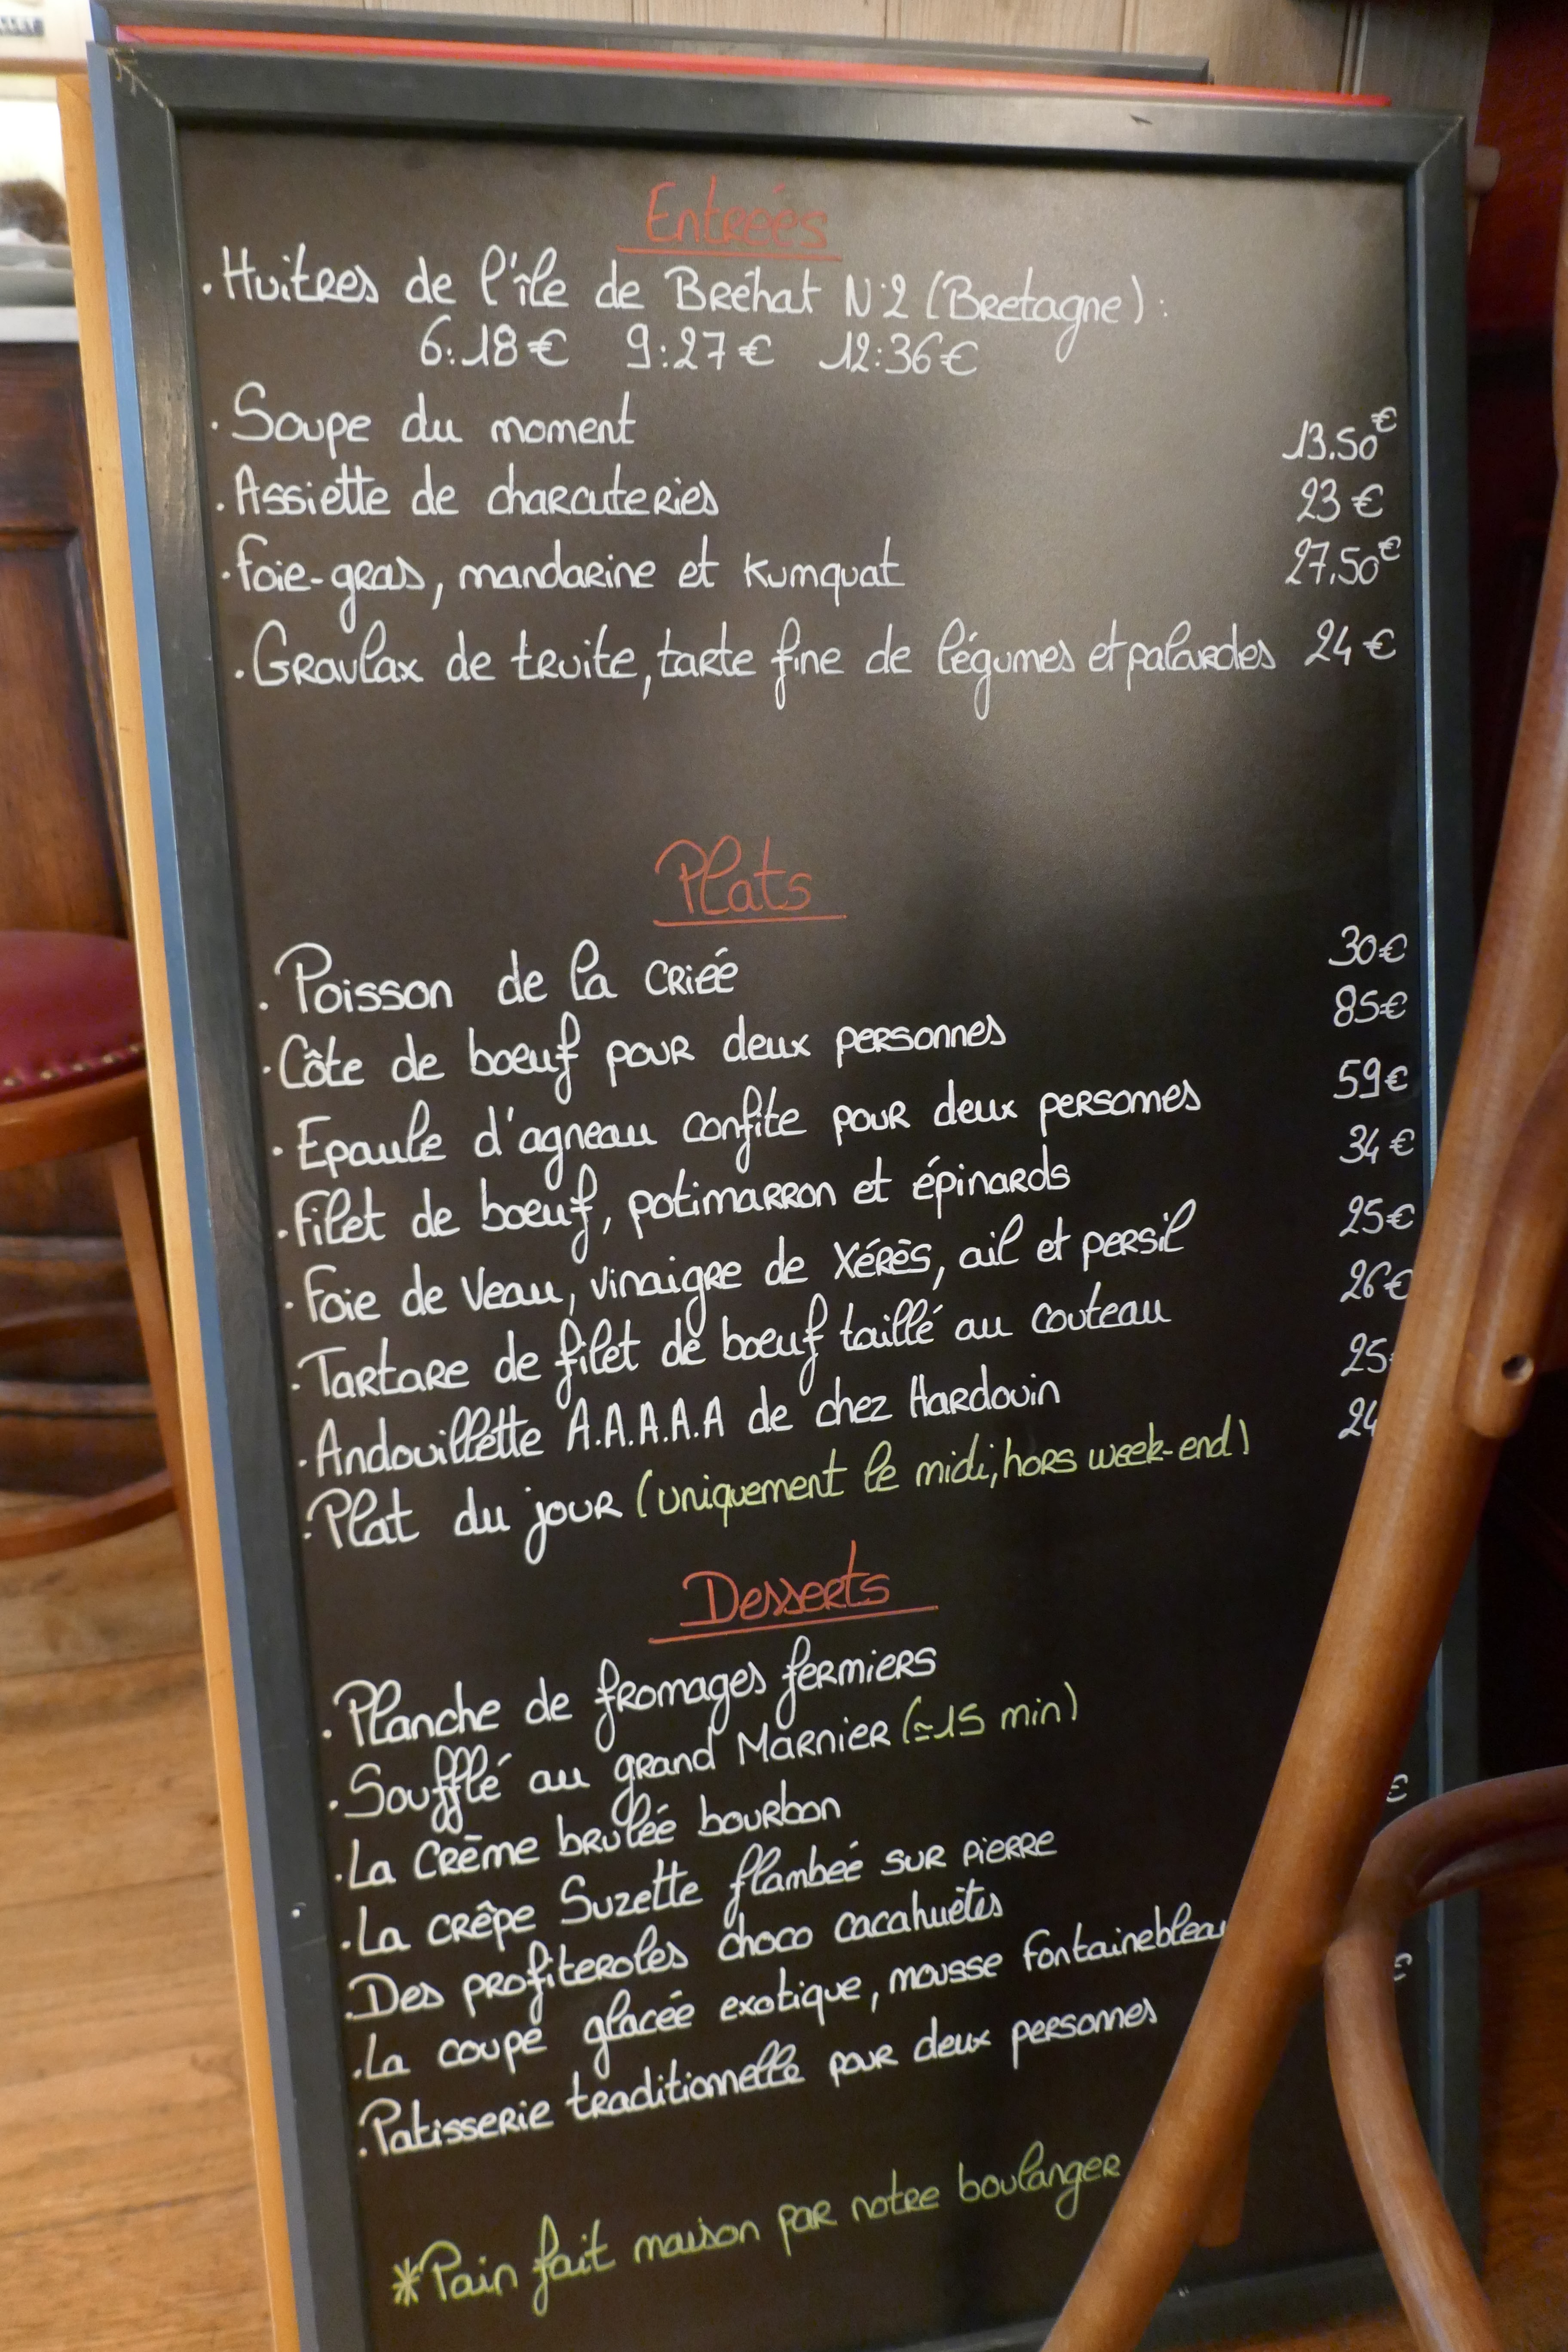 Entrées
. Huitres de l'île de Bréhat N°2 (Bretagne) :
6:18€ 9:27€ 12:36€
. Soupe du moment 13.50€
. Assiette de charcuteries 23€
. Foie-gras, mandarine et kumquat 27.50€
. Gravlax de truite, tarte fine de légumes et palardes 24€
Plats
. Poisson de la criée 30€
. Côte de boeuf pour deux personnes 85€
. Epaule d'agneau confite pour deux personnes 59€
. Filet de boeuf, potimarron et épinards 34€
. Foie de veau, vinaigre de Xérès, ail et persil 25€
. Tartare de filet de boeuf taillé au couteau 26€
. Andouillette A.A.A.A.A de chez Hardouin 25
. Plat du jour (uniquement le midi, hors week-end) 24
Desserts
. Planche de fromages fermiers
. Soufflé au grand Marnier (≃15 min)
. La Crème brulée bourbon €
. La crêpe Suzette flambée sur pierre
. Des profiteroles choco cacahuètes
. La coupe glacée exotique, mousse Fontainebleau €
. Patisserie traditionnelle pour deux personnes
*Pain fait maison par notre boulanger